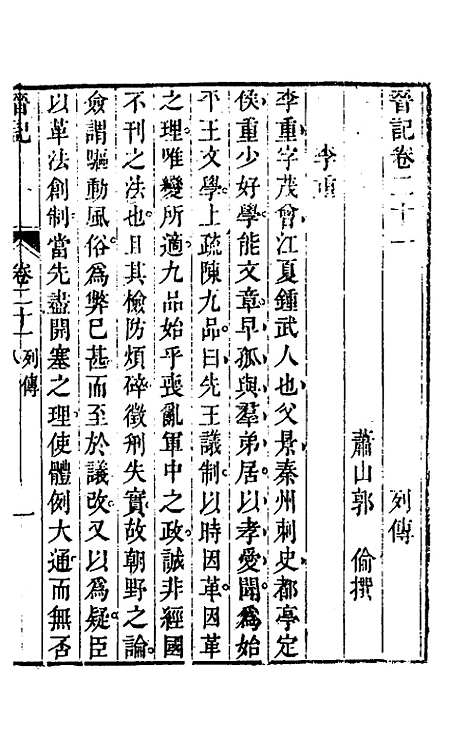 晉記卷二十一　列傳
蕭山郭　倫撰
李重
李重字茂曾江夏鍾武人也父景秦州刺史都亭定
侯重少好學能文章早孤與羣弟居以孝愛聞爲始
平王文學上疏陳九品曰先王議制以時因革因革
之理唯變所適九品始乎喪亂軍中之政誠非經國
不刊之法也且其檢防煩碎徵刑失實故朝野之論
僉謂驅動風俗爲弊已甚而至於議改又以爲疑臣
以革法創制當先盡開塞之理使體例大通而無否
晉記　卷二十一　列傳　一